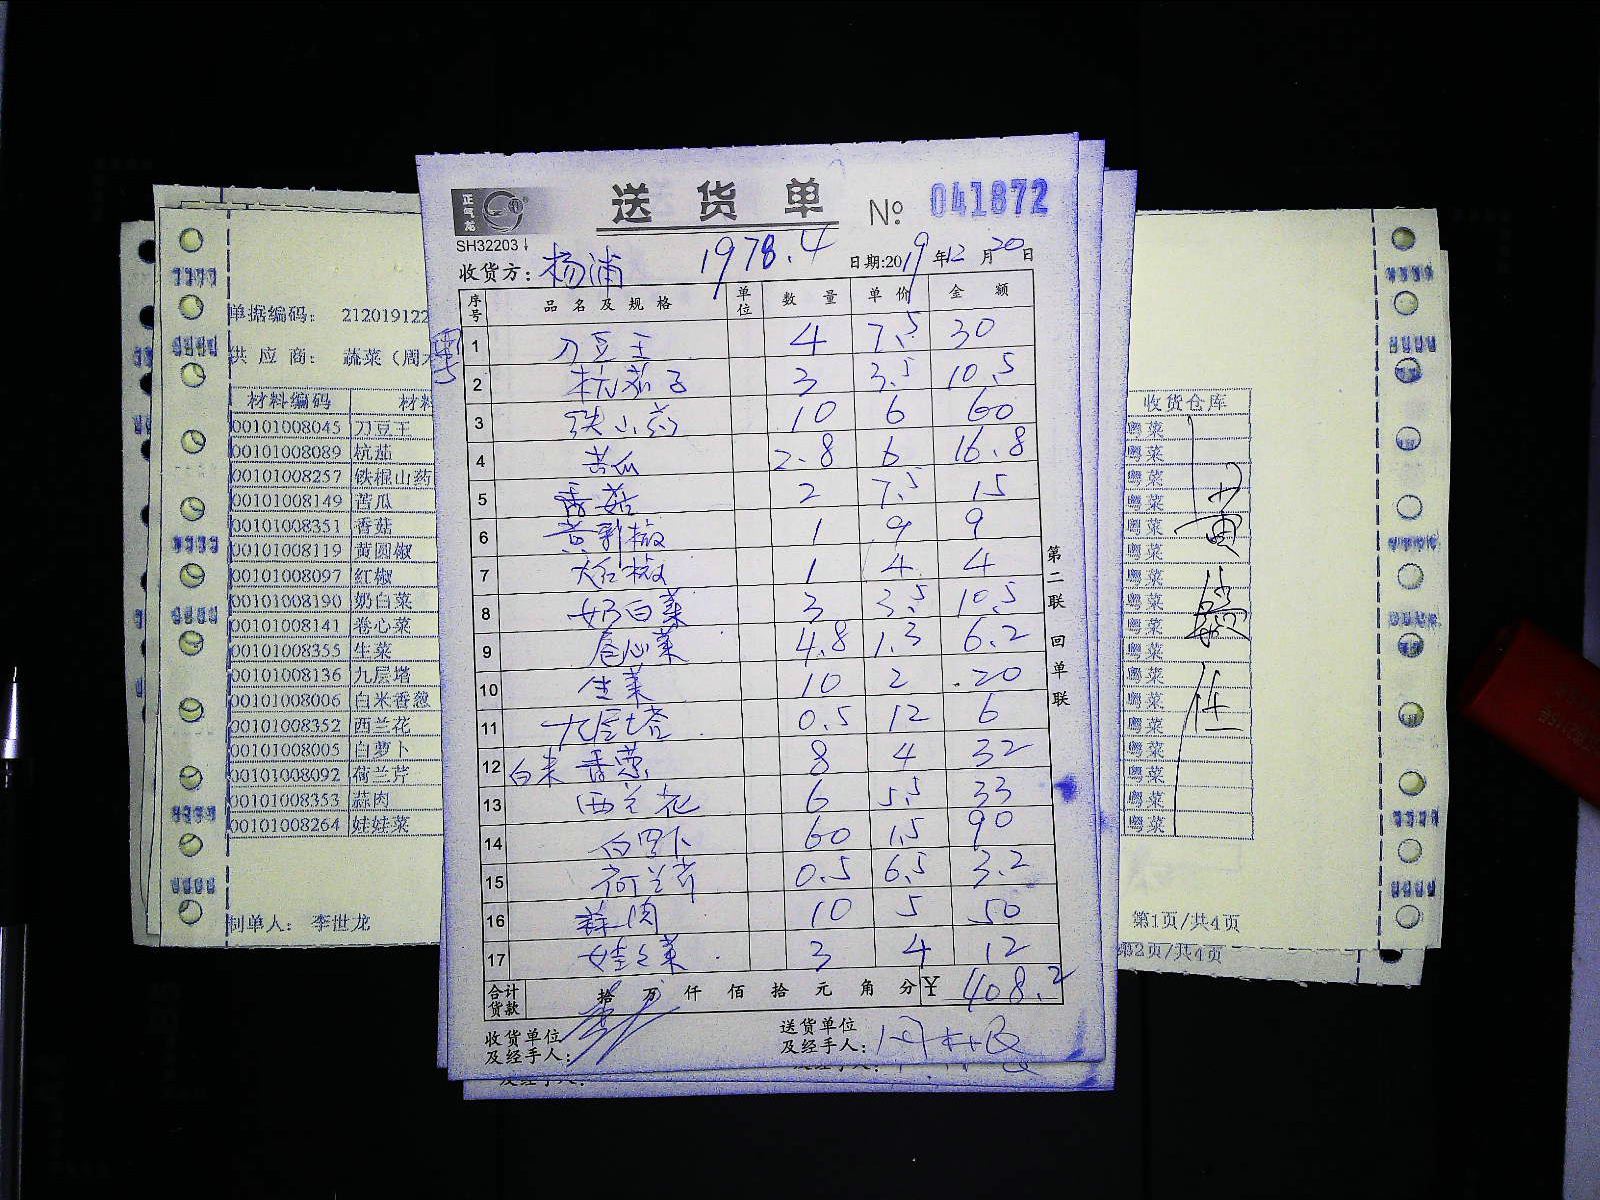 正气龙
送货单 № 041872
SH32203
收货方: 杨浦 1978.4 日期:2019年12月20日
序号 品名及规格 单位 数量 单价 金额
1 刀豆王 4 7.5 30
2 杭茄子 3 3.5 10.5
3 铁山药 10 6 60
4 苦瓜 2.8 6 16.8
5 香菇 2 7.5 15
6 黄彩椒 1 9 9
7 大红椒 1 4 4
8 奶白菜 3 3.5 10.5
9 卷心菜 4.8 1.3 6.2
10 生菜 10 2 20
11 九层塔 0.5 12 6
12 白米香葱 8 4 32
13 西兰花 6 5.5 33
14 白罗卜 60 1.5 90
15 荷兰芹 0.5 6.5 3.2
16 蒜肉 10 5 50
17 娃娃菜 3 4 12
合计货款 拾 万 仟 佰 拾 元 角 分 ¥ 408.2
收货单位及经手人:
送货单位及经手人:
第二联 回单联
单据编码: 212019122
供应商: 蔬菜(周
材料编码 材料
00101008045 刀豆王
00101008089 杭茄
00101008257 铁棍山药
00101008149 苦瓜
00101008351 香菇
00101008119 黄圆椒
00101008097 红椒
00101008190 奶白菜
00101008141 卷心菜
00101008355 生菜
00101008136 九层塔
00101008006 白米香葱
00101008352 西兰花
00101008005 白萝卜
00101008092 荷兰芹
00101008353 蒜肉
00101008264 娃娃菜
制单人: 李世龙
收货仓库
粤菜
粤菜
粤菜
粤菜
粤菜
粤菜
粤菜
粤菜
粤菜
粤菜
粤菜
粤菜
粤菜
粤菜
粤菜
粤菜
粤菜
第1页/共4页
第2页/共4页